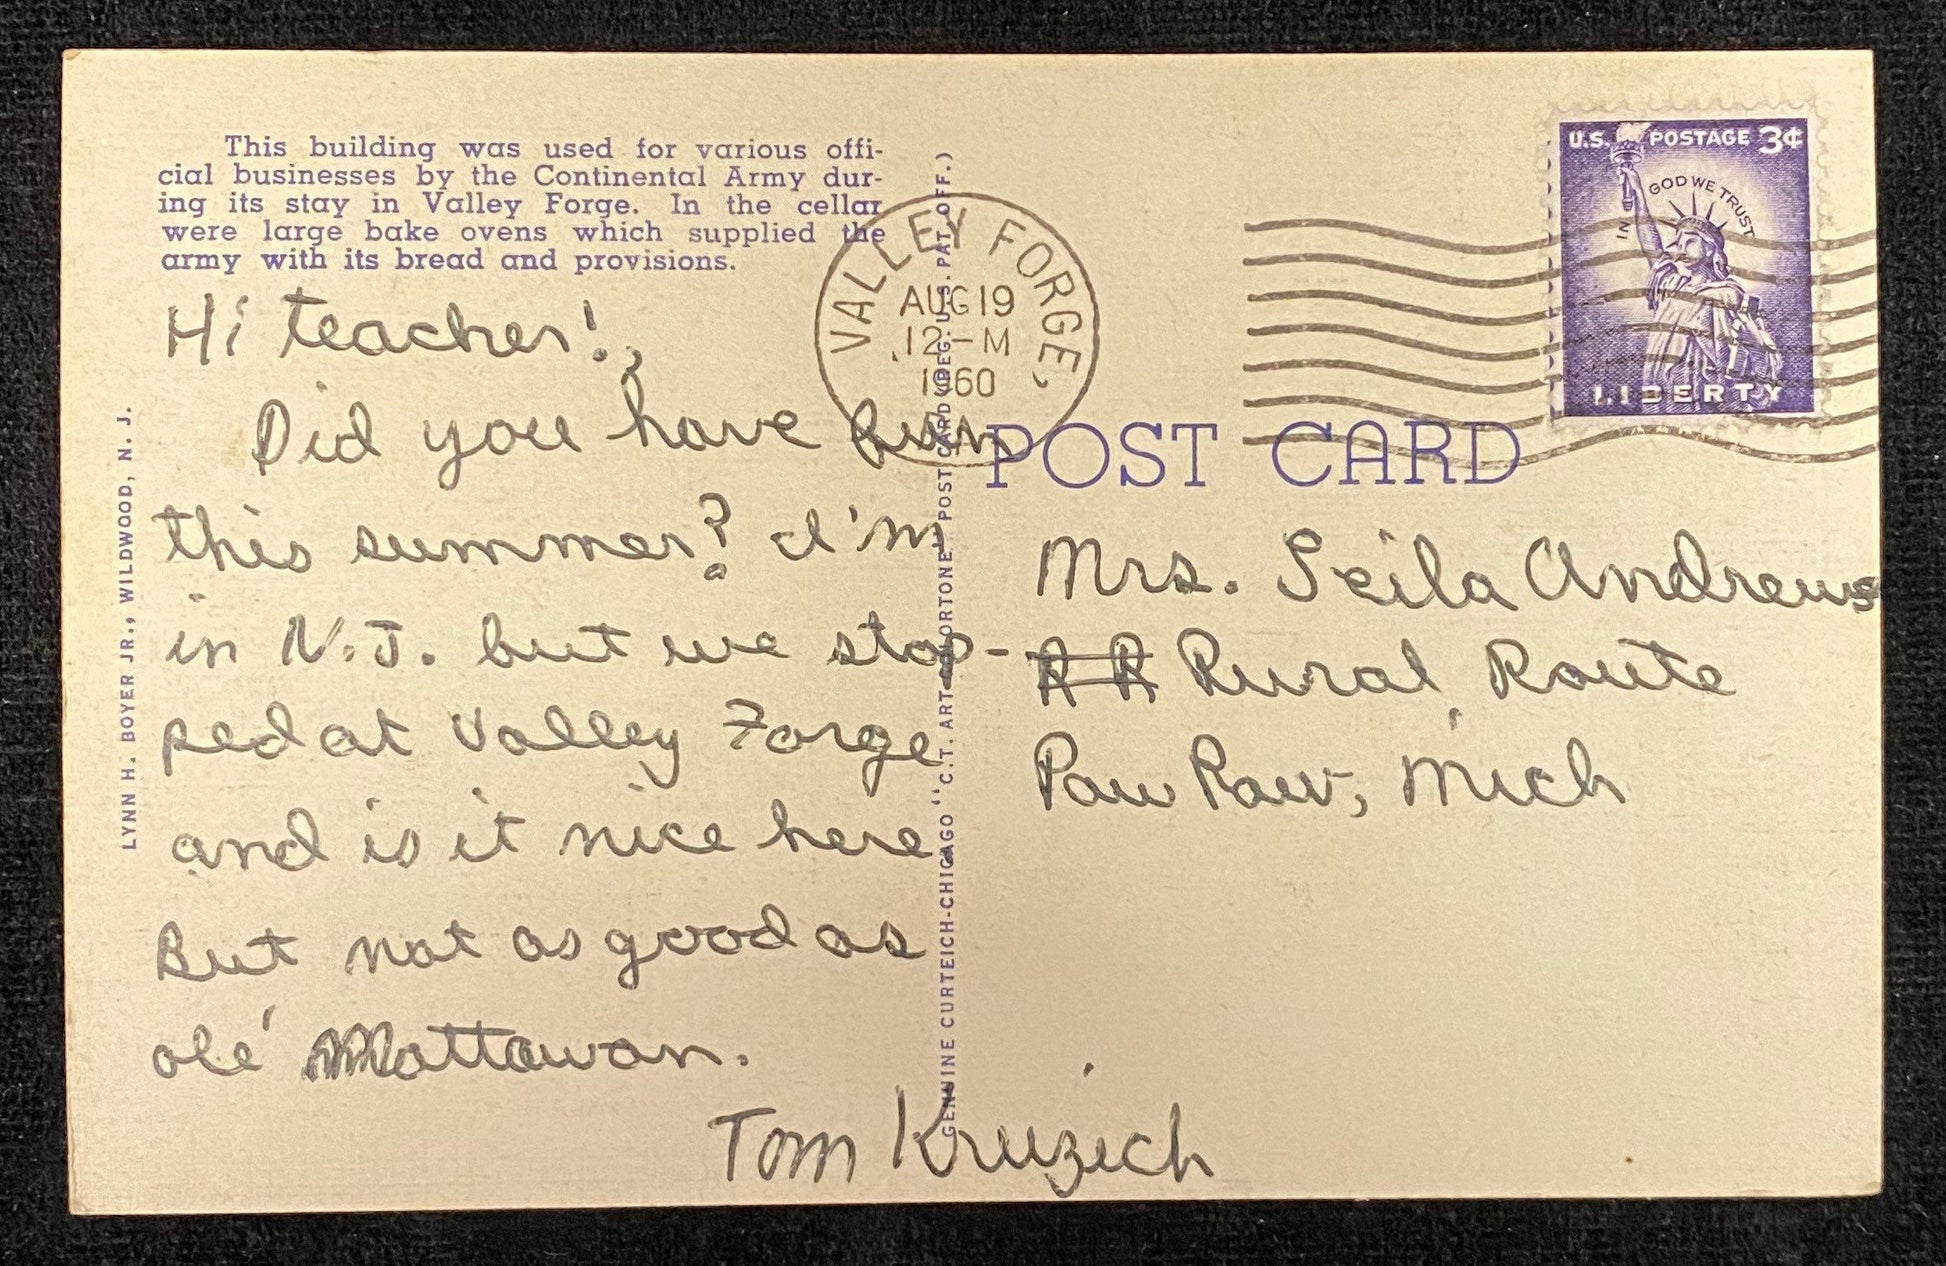 This building was used for various offi-
cial businesses by the Continental Army dur-
ing its stay in Valley Forge. In the cellar
were large bake ovens which supplied the
army with its bread and provisions.
Hi teacher!,
Did you have fun
this summer? I'm
in N.J. but we stop-
ped at Valley Forge
and is it nice here.
But not as good as
ole' Mattawan.
Tom Kruzich
LYNN H. BOYER JR., WILDWOOD, N. J.
GENUINE CURTEICH-CHICAGO "C.T. ART-COLORTONE" POST CARD (REG. U.S. PAT. OFF.)
VALLEY FORGE,
AUG 19
12-M
1960
U.S. POSTAGE 3¢
IN GOD WE TRUST
LIBERTY
POST CARD
Mrs. Seila Andrews
R R Rural Route
Paw Paw, Mich